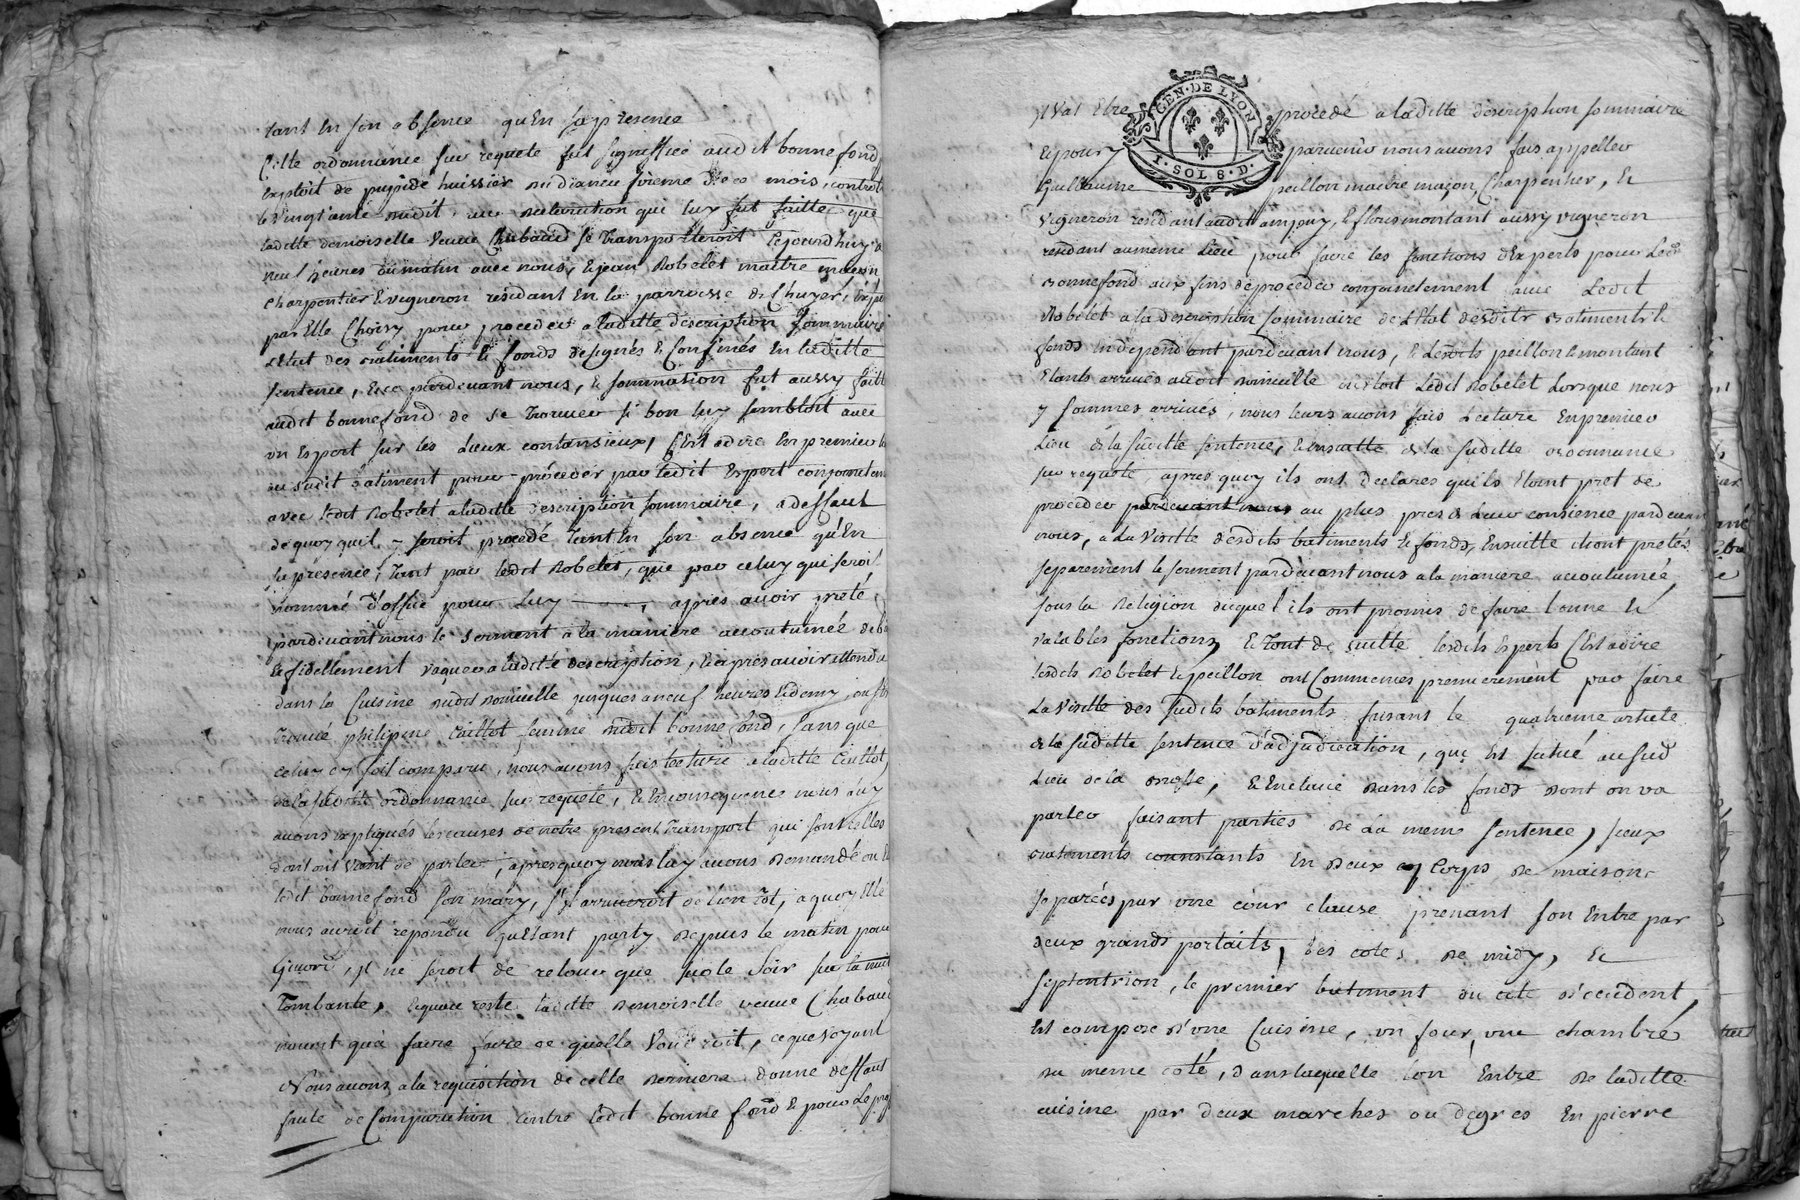 tant en son absence qu'en sa presence
Cette ordonnance sur requete fut signiffiée audit bonnefond
exploit de huissier du dixneuvieme de ce mois, controllé
le vingt dudit, avec declaration qui luy fut faitte que
laditte demoiselle veuve Chabaud se transporteroit cejourdhuy a
neuf heures du matin avec nous, et jean Robelet maitre maçon
charpentier et vigneron résidant en la parroisse de Chuyer, expert
par elle Choisy pour proceder a laditte déscription sommaire
de l'etat des batiments et fonds designés et confinés en laditte
sentence, et ce pardevant nous, et sommation fut aussy faitte
audit bonnefond de se trouver si bon luy sembloit avec
un expert sur les lieux contansieux, C'est a dire en premier lieu
au sudit batiment pour procéder par ledit expert conjointement
avec ledit Robelet a laditte description sommaire, a deffaut
de quoy quil y seroit procédé tant en son absence qu'en
sa presence, tant par ledit Robelet, que par celuy qui seroit
nommé d'office pour luy, après avoir preté
pardevant nous le serment a la maniere accoutumée de bien
et fidellement vaquer a laditte description, et apres avoir attendu
dans la Cuisine dudit domicille jusques a neuf heures et demy, ou
trouvé philipine Caillot femme dudit bonnefond, sans que
celuy cy soit comparu, nous avons fais lecture a laditte Caillot
de la suditte ordonnance sur requete, et en consequence nous luy
avons expliqués les causes de notre present transport qui sont celles
dont on vient de parler, apres quoy nous luy avons demandé ou est
ledit bonnefond son mary, s'il arriveroit bientôt, a quoy elle
nous auroit répondu qu'etant party depuis le matin pour
Givord, il ne seroit de retour que sur le soir sur la nuit
tombante, et quau reste laditte demoiselle veuve Chabaud
n'avoit qu'a faire faire ce quelle voudroit, ce que voyant
Nous avons a la requisition de cette derniere donné deffaut
faute de Comparution contre ledit bonnefond et pour le profit
GEN. DE LYON
1. SOL 8. D.
il va Etre procédé a laditte déscription sommaire
et pour y parvenir nous avons fais appeller
Guillaume peillon maitre maçon, Charpentier, et
vigneron residant audit ampuy, et montant aussy vigneron
residant au meme Lieu pour faire les fonctions d'experts pour Ledit
bonnefond aux fins de proceder conjointement avec Ledit
Robélet a la description sommaire de l'Etat desdits batiments et
fonds en dependant pardevant nous, et Lesdits peillon et montant
etants arrivés audit domicille ou etoit Ledit Robélet Lorsque nous
y sommes arrivés, nous leurs avons fais Lecture en premier
Lieu de la suditte sentence, et ensuitte de la suditte ordonnance
sur requete, apres quoy ils ont déclarés quils etoint pret de
procéder pardevant nous au plus pres de leur consience pardevant
nous, a La visitte desdits batiments et fonds, ensuitte ils ont pretés
séparément le serment pardevant nous a la maniere accoutumée,
sous la Religion duquel ils ont promis de faire bonne et
valables fonctions, et tout de suitte lesdits experts C'est a dire
lesdits Robelet et peillon ont Commencés premierement par faire
La visitte des sudits batiments faisant le quatrieme article
de la suditte sentence d'adjudication, qui est situé au sud
Lieu de la et enclavé dans les fonds dont on va
parler faisant parties de La meme sentence, iceux
batiments consistants en deux corps de maison
séparés par une cour clause prenant son entre par
deux grands portails, des cotés de midy, et
septentrion, le premier batiment du coté d'occident
est compose d'une Cuisine, un four, une chambre
du meme coté, dans laquelle l'on entre de laditte
cuisine par deux marches ou degres en pierre